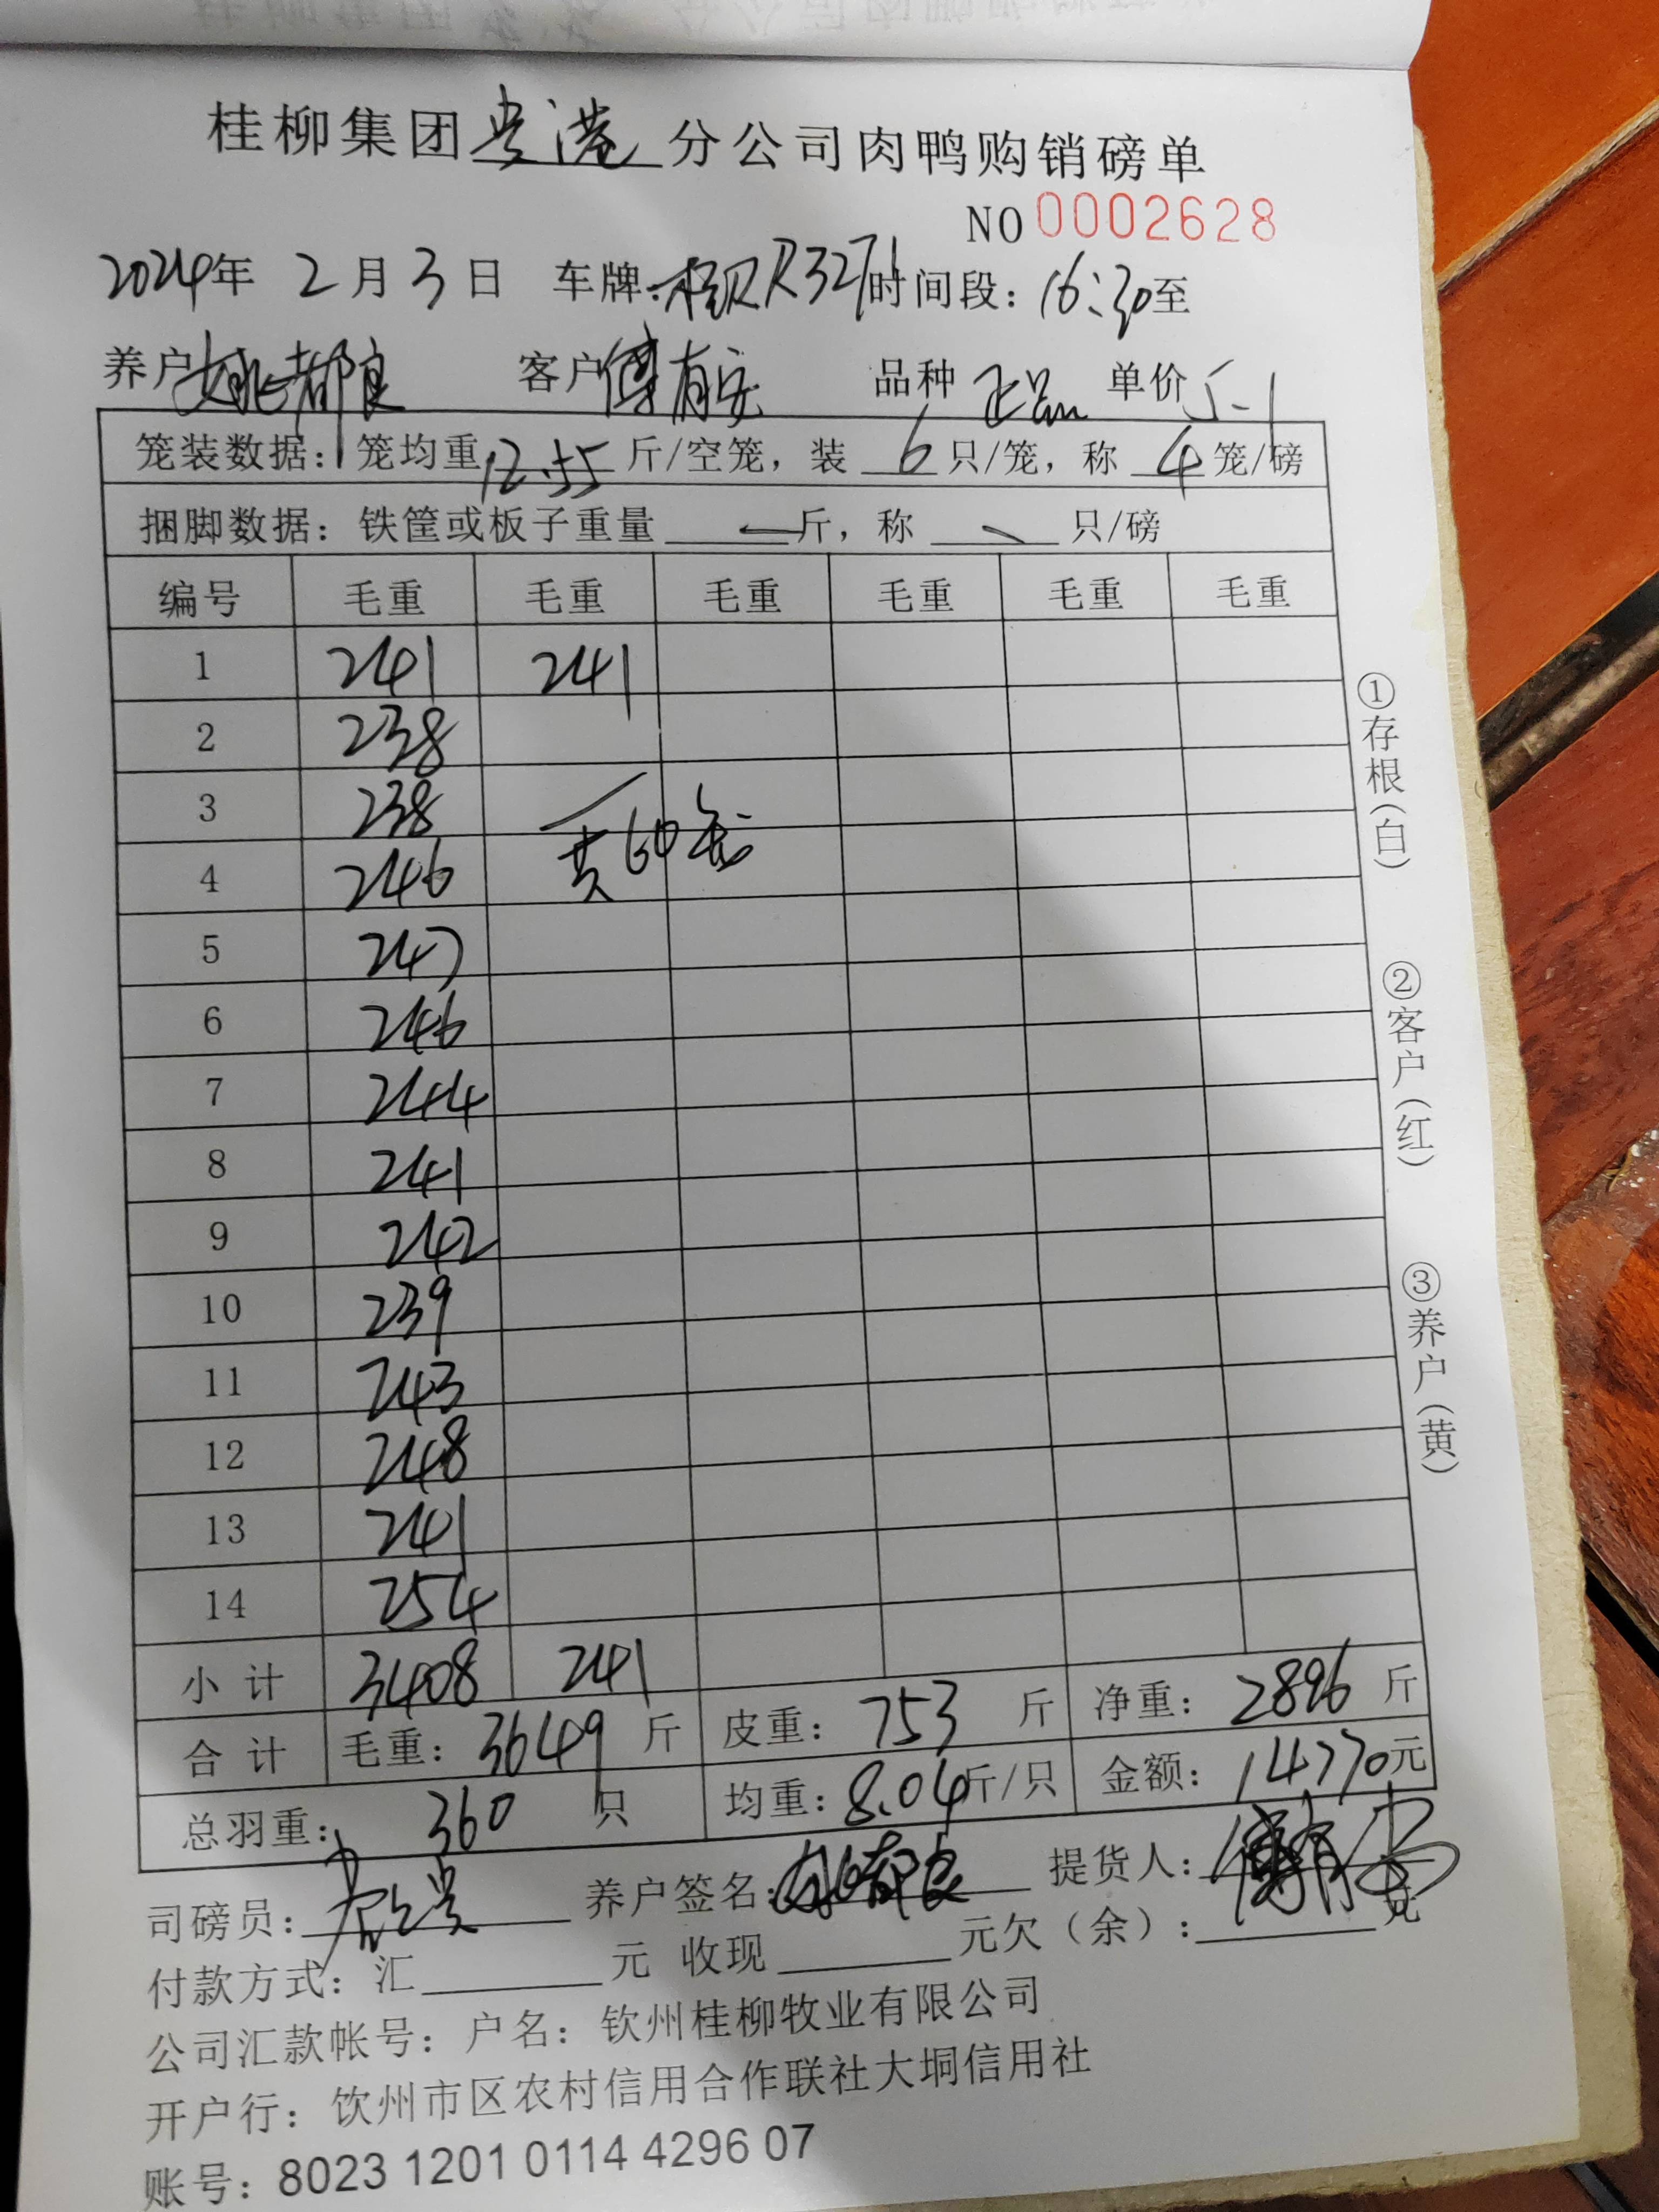 桂柳集团贵港分公司肉鸭购销磅单
NO 0002628
2024年 2月3日 车牌:桂R R3271 时间段:16:30至
养户姚都良 客户傅有安 品种 正品 单价5.1
笼装数据:笼均重12.55斤/空笼,装 6 只/笼,称 4 笼/磅
捆脚数据:铁筐或板子重量 — 斤,称 — 只/磅
编号 毛重 毛重 毛重 毛重 毛重 毛重
1 241 241
2 238
3 238
4 246 共60笼
5 247
6 246
7 244
8 241
9 242
10 239
11 243
12 248
13 241
14 254
小计 3408 241
合计 毛重:3649 斤 皮重:753 斤 净重:2896 斤
总羽重:360 只 均重:8.04斤/只 金额:14770元
司磅员: 养户签名:姚都良 提货人:傅有安
付款方式:汇 元 收现 元欠(余): 元
公司汇款帐号:户名:钦州桂柳牧业有限公司
开户行:钦州市区农村信用合作联社大垌信用社
账号:8023 1201 0114 4296 07
①存根(白)
②客户(红)
③养户(黄)